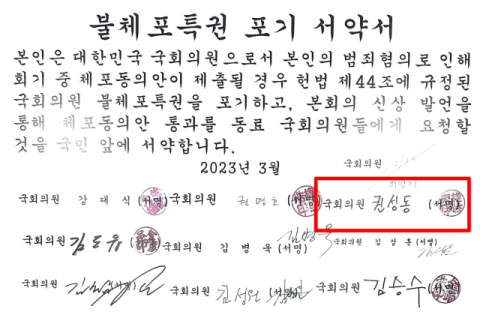 불체포특권 포기 서약서
본인은 대한민국 국회의원으로서 본인의 범죄혐의로 인해
회기 중 체포동의안이 제출될 경우 헌법 제44조에 규정된
국회의원 불체포특권을 포기하고, 본회의 신상 발언을
통해 체포동의안 통과를 동료 국회의원들에게 요청할
것을 국민 앞에 서약합니다.
2023년 3월
국회의원
국회의원 강대식 (서명) 국회의원 권명호 (서명) 국회의원 권성동 (서명)
국회의원 김병욱 (서명) 국회의원 (서명)
국회의원 국회의원 (서명) 국회의원 김승수 (서명)